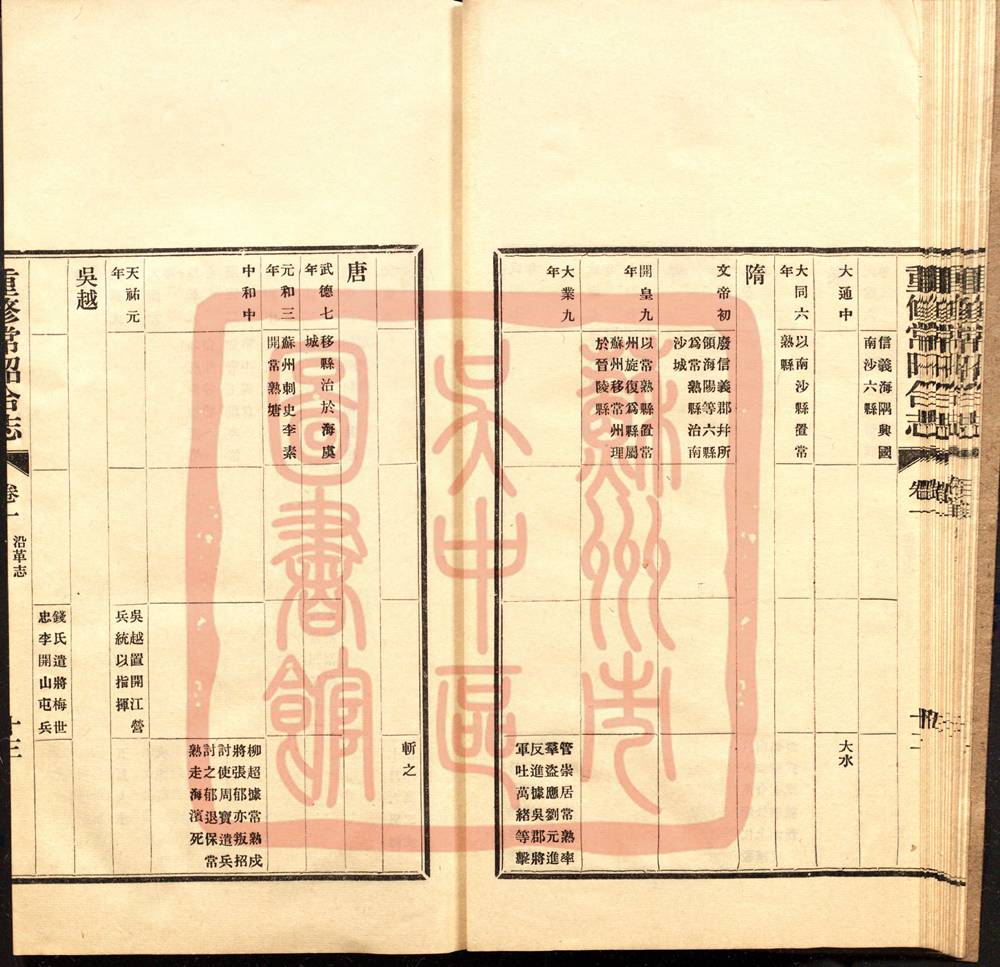 信義海隅興國
南沙六縣
大通中
大水
大同六
年
以南沙縣置常
熟縣
隋
文帝初
廢信義郡并所
領海陽等六縣
為常熟縣治南
沙城
開皇九
年
以常熟縣置常
州旋復爲縣屬
蘇州移常州理
於晉陵縣
大業九
年
管崇居常熟率
羣盜應劉元進
反進據吳郡將
軍吐萬緒等擊
斬之
唐
武德七
年
移縣治於海虞
城
元和三
年
蘇州刺史李素
開常熟塘
中和中
柳超據常熟戍
將張郁亦叛招
討使周寶遣兵
討之郁退保常
熟走海濱死
天祐元
年
吳越置開江營
兵統以指揮
吳越
錢氏遣將梅世
忠李開山屯兵
重修常昭合志
卷一
沿革志
十三
蘇州市
吳中區
圖書館